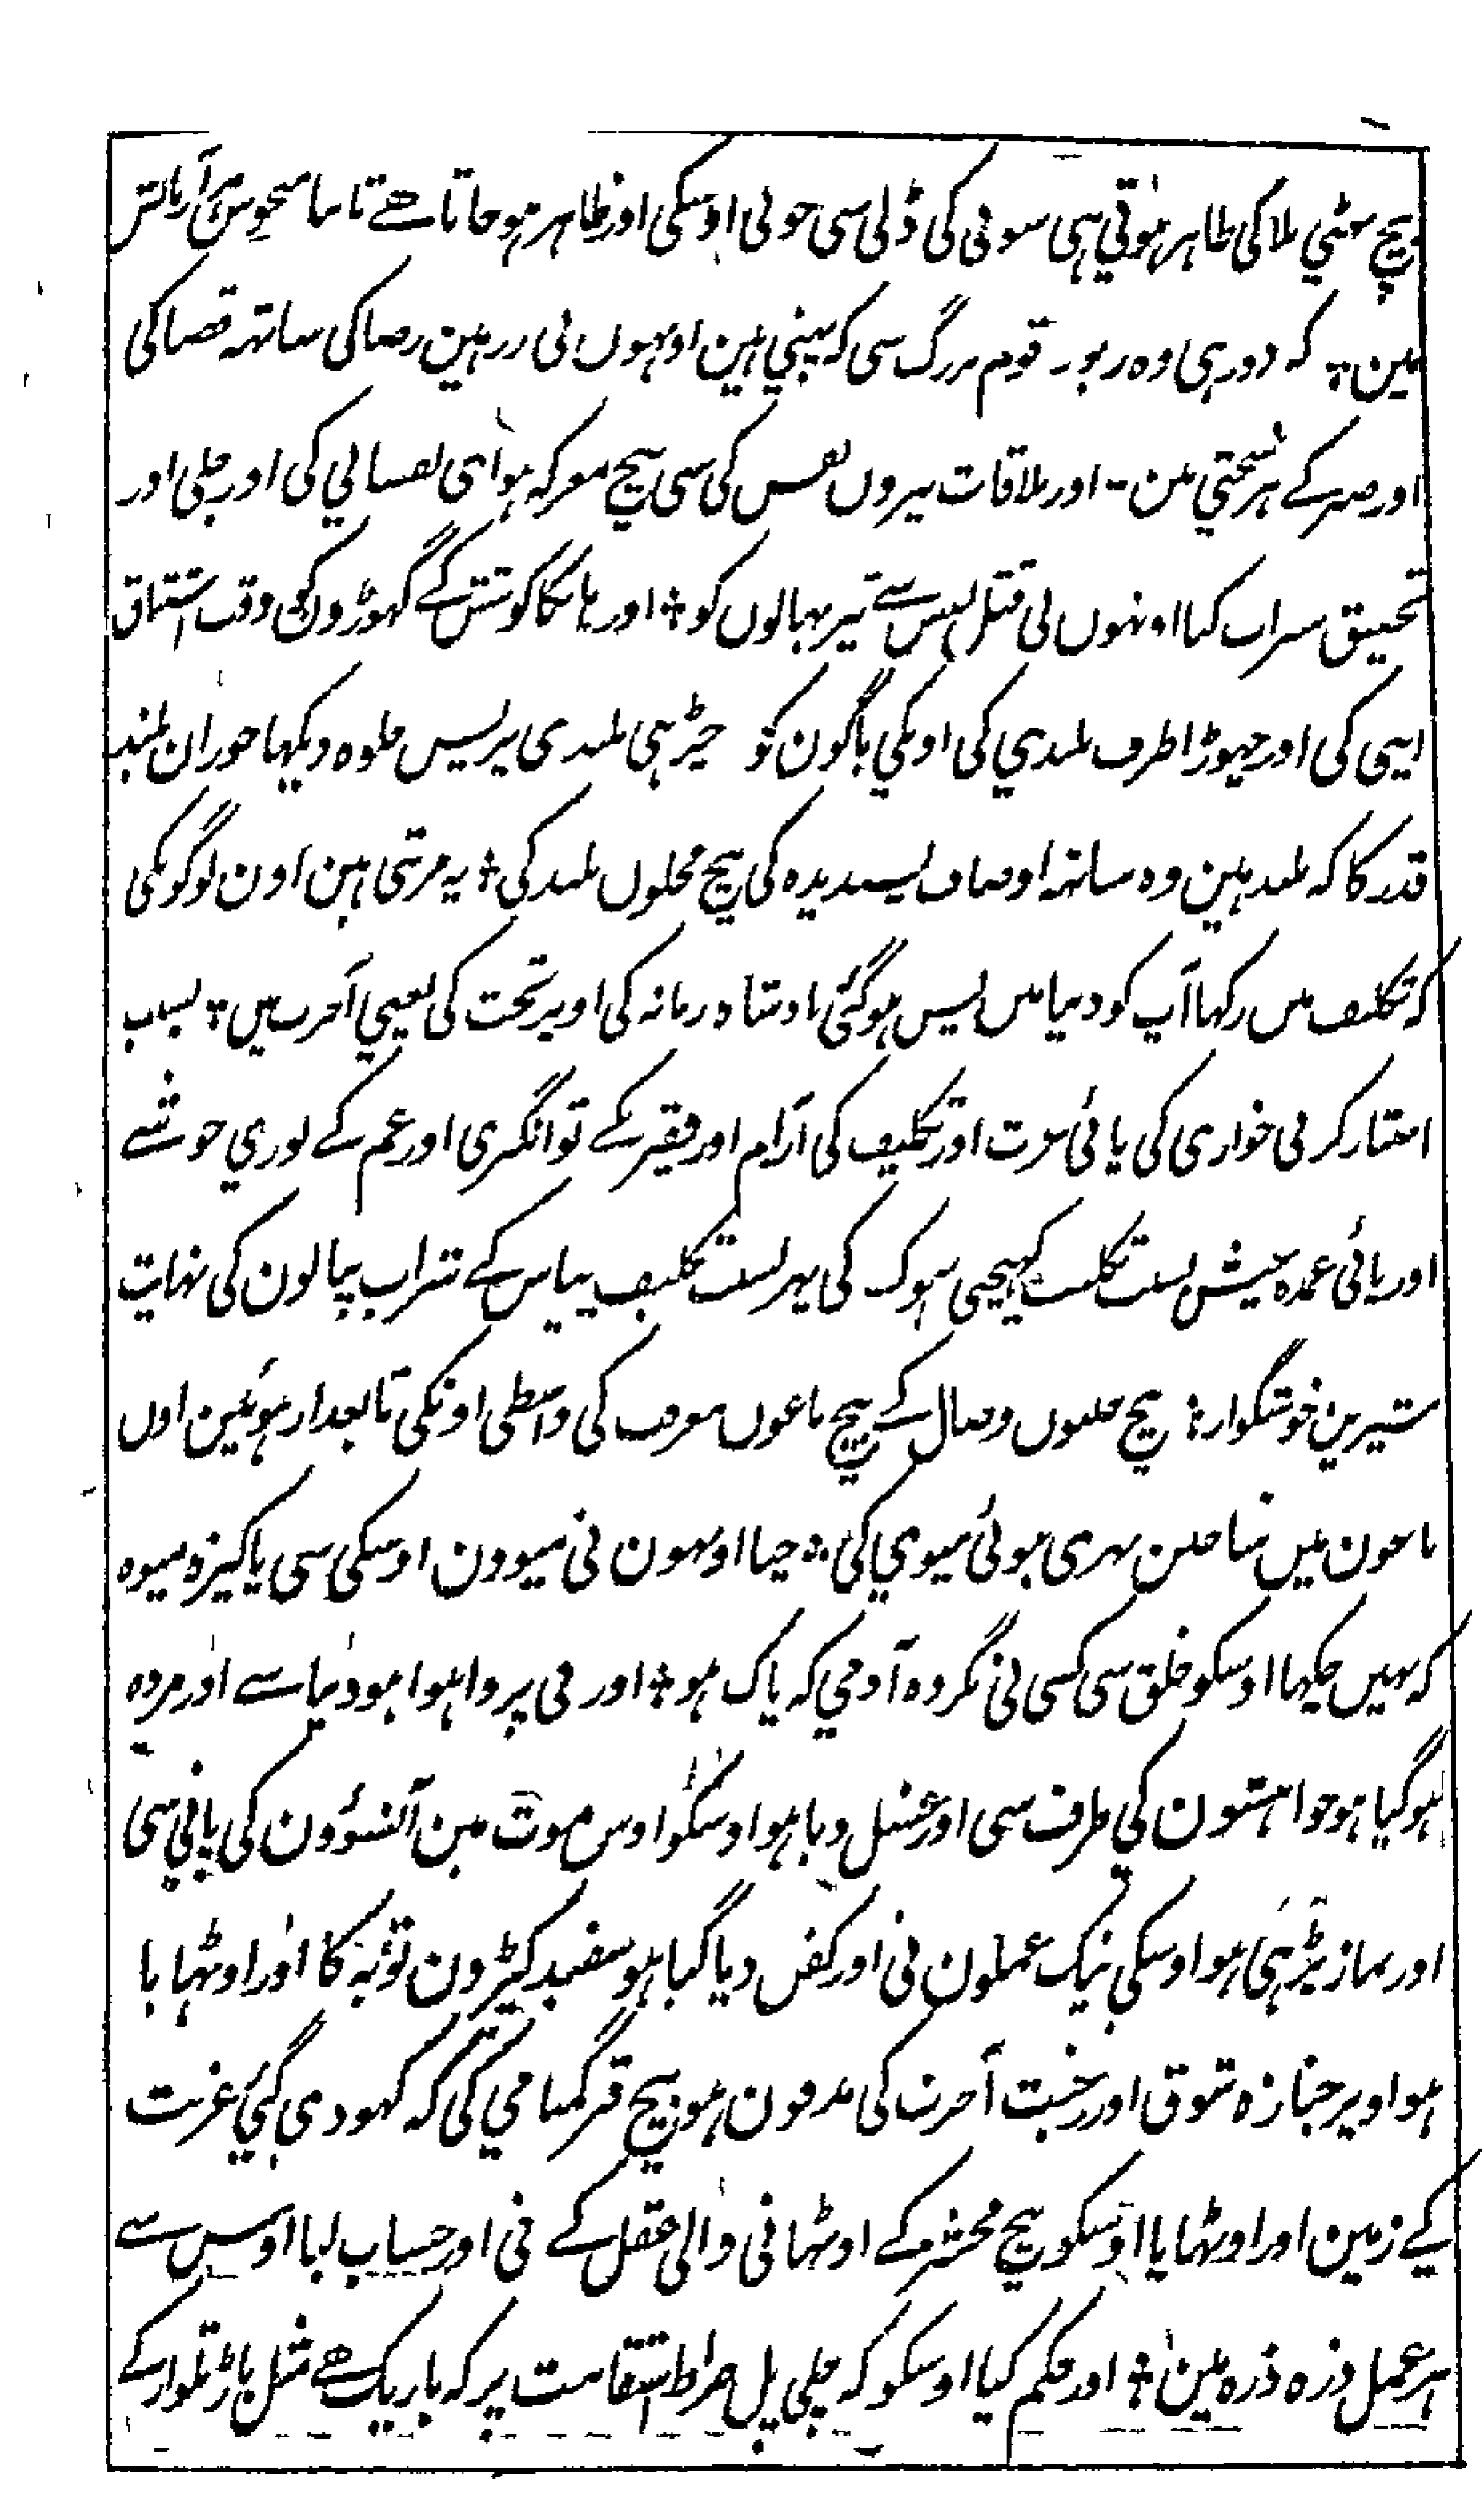 بیچ بھٹي بلا کی ظاہر ہوتي ہی سونی کی ڈلی سی خوبی اوسکی اور ظاہر ہو جاتا ھے تانبا آزمائش
مین ؞ کہ دور ہی وہ زیور قوم بزرگ سی کہ پہنی ہین اونہوں نی زرہین رضا کی ساتہہ قضا کی
اور صبر کے ہر سختي مین - اور ملاقات نفس کی سی بیچ معرکہ ہوای نفسانی کی اور چلی اور
تحقیق سیراب کیا اونہوں نی قتل سے تیز بہالوں کو ؞ اور ہانکا کوشش کے گہوڑوں کو وقت اشتیاق
ایسی کی اور چہوڑا طرف بلندي کی اونکي باگون کو چڑہی بلندی پر پس جلوہ دیکہا حوران بلند
قدر کا کہ بلند ہین وہ ساتہہ اوصاف پسندیدہ کی بیچ محلوں بلند کی ؞ یہ مرتبی ہین اون لوگونکی
کہ تکلیف میں رکہا آپ کو دنیا میں پس ہوگئی بادشاہ زمانہ کی اوپر تخت کی یعني آخرت میں ؞ بسبب
اختیار کرنی خواری کی پائی عزت اور تکلیف کی آرام اور فقیر کے توانگری اور غم کے پوري خوشے
اور پائی عمدہ عیش بہوک کی بہر تکلیف پیاس کے شراب پیالون کی نہایت
شیرین خوشگوار ؞ بیچ وصال کے بیچ باغوں معرفت کی واسطی اونکی تابعدار ہوئین اون
باغون میں شاخین بہری ہوئی میوي کی ؞ چنا اونہون نی میوون اوسکی سی پاکیزہ میوہ
کہ نہیں چکہا اوسکو خلق سی کسی نی مگر وہ آدمي کہ پاک ہو ؞ اور بی پروا ہوا ہو دنیا سے اور مردہ
ہوگیا ہو خواہشون کي طرف سی اور غسل دیا ہو اوسکو اوس موت مین آنسؤون کی پانی سی
اور نماز پڑہی ہو اوسکی نیک عملون نی اور کفن دیا گیا ہو سفید کپڑون توبہ کا اور اوٹہایا
ہو اوپر جنازہ شوق اور رغبت آخرت کی مدفون ہو بیچ قبر گمنامي کی کہ کہودي گئی عزت
کے زمین اور اوٹہایا اوسکو بیچ محشر کے اوٹہانی والی عقل کے نی اور حساب لیا اوس سے
ہر عمل ذرہ ذرہ مین ؞ اور حکم کیا اوسکو کہ چلی پل صراط استقامت پر کہ باریک ھے مثل باڑ تلوار کے